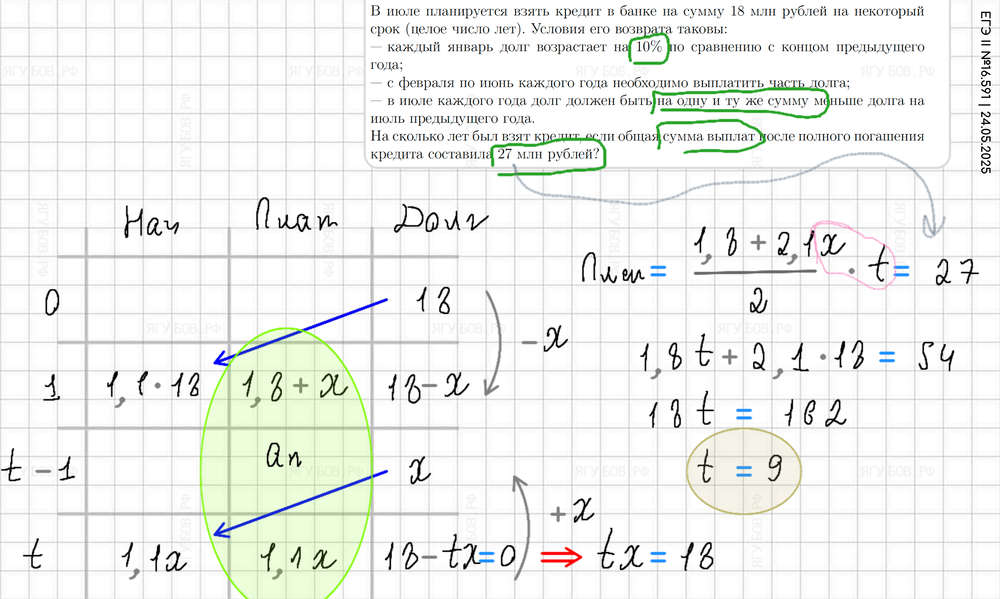 В июле планируется взять кредит в банке на сумму 18 млн рублей на некоторый
срок (целое число лет). Условия его возврата таковы:
— каждый январь долг возрастает на 10% по сравнению с концом предыдущего
года;
— с февраля по июнь каждого года необходимо выплатить часть долга;
— в июле каждого года долг должен быть на одну и ту же сумму меньше долга на
июль предыдущего года.
На сколько лет был взят кредит, если общая сумма выплат после полного погашения
кредита составила 27 млн рублей?
ЕГЭ II №16.591 | 24.05.2025
Нач Плат Долг
0 18
- x
1 1,1·18 1,8 + x 18-x
t - 1 an x
+ x
t 1,1x 1,1x 18-tx=0 ⇒ tx = 18
Плат = (1,8 + 2,1x)/2 · t = 27
1,8t + 2,1·18 = 54
18t = 162
t = 9
ЯГУБОВ.РФ